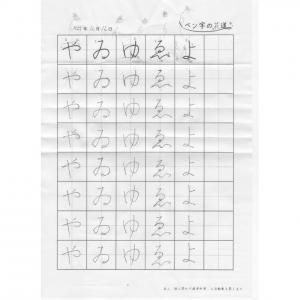 ペン字の花道
や ゐ ゆ ゑ よ
や ゐ ゆ ゑ よ
や ゐ ゆ ゑ よ
や ゐ ゆ ゑ よ
や ゐ ゆ ゑ よ
や ゐ ゆ ゑ よ
や ゐ ゆ ゑ よ
や ゐ ゆ ゑ よ